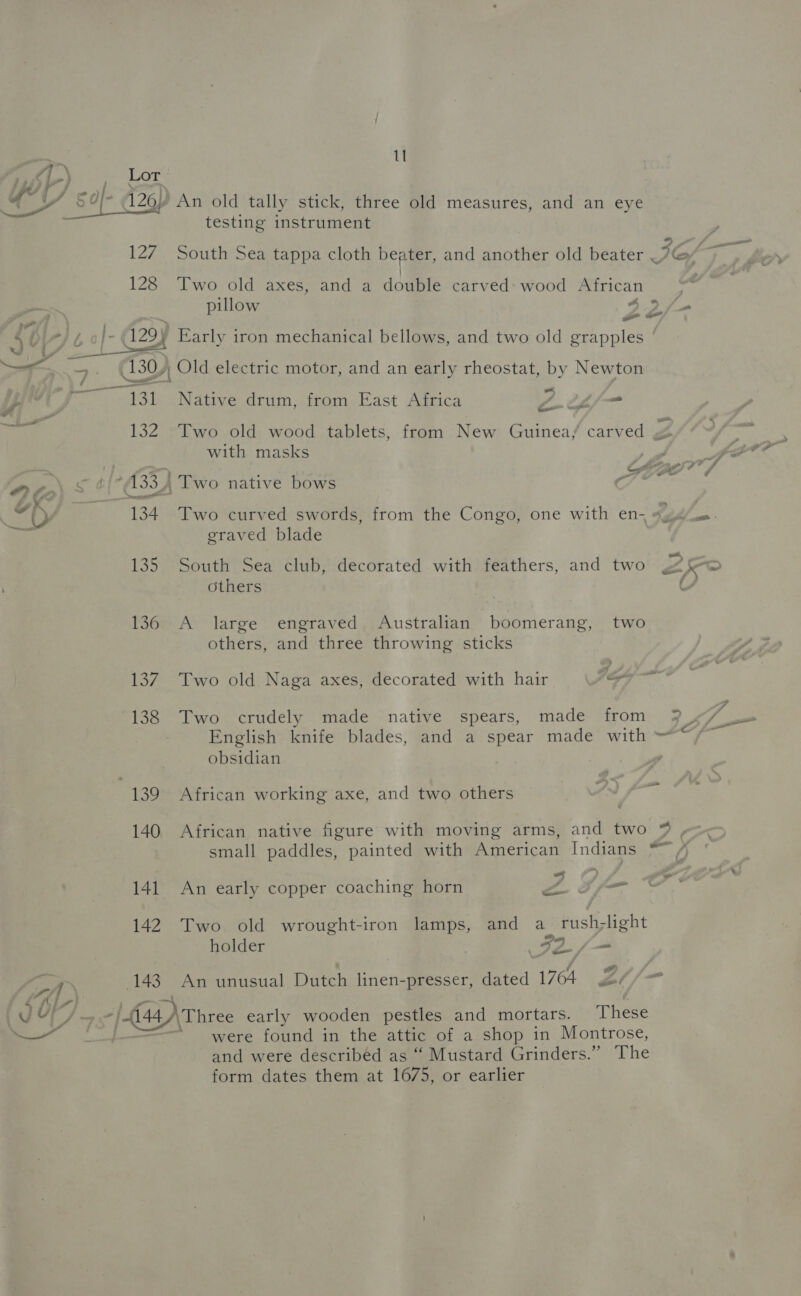 11
Lot
126 An old tally stick, three old measures, and an eye
testing instrument
127 South Sea tappa cloth beater, and another old beater
128 Two old axes, and a double carved wood African
pillow 22/-
129 Early iron mechanical bellows, and two old grapples
130 Old electric motor, and an early rheostat, by Newton
131 Native drum, from East Africa
132 Two old wood tablets, from New Guinea, carved
with masks
133 Two native bows
134 Two curved swords, from the Congo, one with en-
graved blade
135 South Sea club, decorated with feathers, and two
others
136 A large engraved Australian boomerang, two
others, and three throwing sticks
137 Two old Naga axes, decorated with hair
138 Two crudely made native spears, made from
English knife blades, and a spear made with
obsidian
139 African working axe, and two others
140 African native figure with moving arms, and two
small paddles, painted with American Indians
141 An early copper coaching horn
142 Two old wrought-iron lamps, and a rush-light
holder
143 An unusual Dutch linen-presser, dated 1764
144 Three early wooden pestles and mortars. These
were found in the attic of a shop in Montrose,
and were described as “ Mustard Grinders.” The
form dates them at 1675, or earlier